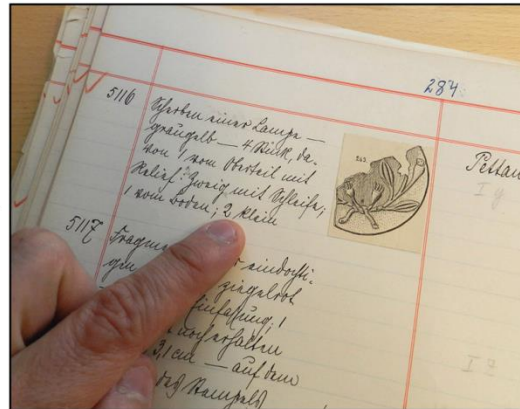 284
5116 Scherben einer Lampe —
graugelb — 4 Stück, da-
von 1 vom Oberteil mit
Relief: Zweig mit Schleife;
1 vom Boden; 2 klein
Pettau
I y
5117 Fragment eindochti-
gen ziegelrot
Einfassung, 1
noch erhalten
3,1 cm — auf dem
des Stempels
I z